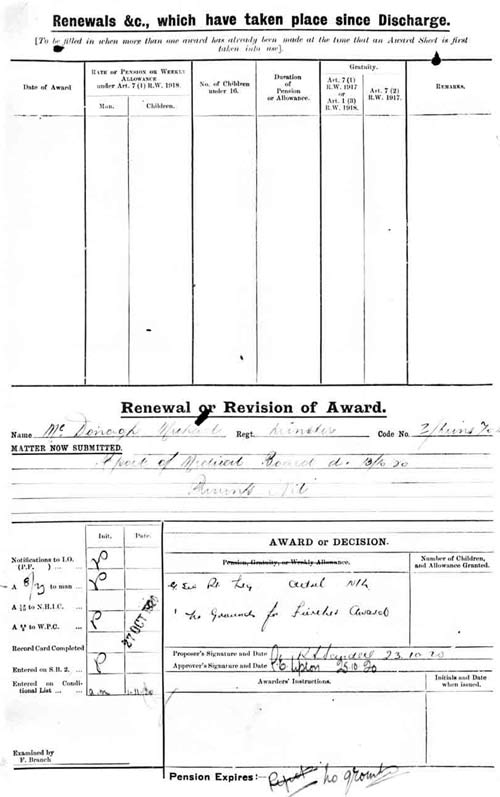 Renewals &c., which have taken place since Discharge.
[To be filled in when more than one award has already been made at the time that an Award Sheet is first
taken into use].
Date of Award
Rate of Pension or Weekly
Allowance
under Art. 7 (1) R.W. 1918.
Man.
Children.
No. of Children
under 16.
Duration
of
Pension
or Allowance.
Gratuity.
Art. 7 (1)
R.W. 1917
or
Art. 1 (3)
R.W. 1918.
Art. 7 (2)
R.W. 1917.
Remarks.
Renewal or Revision of Award.
Name Mc Donagh Michael Regt. Munster Code No.
MATTER NOW SUBMITTED.
Report of Medical Board d.
Nil
Init.
Date.
Notifications to I.O.
(P.F. ) ... ...
A to man ...
A to N.H.I.C. ...
A to W.P.C. ...
27 OCT 1920
Record Card Completed
Entered on S.B. 2. ...
Entered on Condi-
tional List ... ...
Examined by
F. Branch
AWARD OR DECISION.
Pension, Gratuity, or Weekly Allowance.
Nil
No Grounds for Further Award
Number of Children,
and Allowance Granted.
Proposer's Signature and Date 23.10.20
Approver's Signature and Date Upton 25 10 20
Awarders' Instructions.
Initials and Date
when issued.
Pension Expires:— no grounds